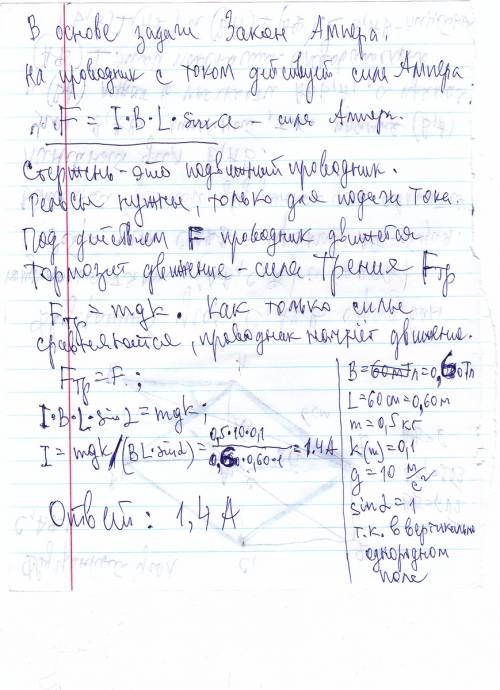 В основе задачи Закон Ампера.
На проводник с током действует сила Ампера
F = I·B·L·sinα - сила Ампера.
Стержень - это подвижный проводник.
Рельсы нужны, только для подачи тока.
Под действием F проводник движется
Тормозит движение - сила Трения Fтр
Fтр = mgk. Как только силы
сравняются, проводник начнёт движение.
Fтр = F;
I·B·L·sinα = mgk;
I = mgk/(BL·sinα) = 0,5·10·0,1 / 0,60·0,60·1 = 1.4А
Ответ: 1,4 А
B = 60мТл = 0,60Тл
L = 60см = 0,60м
m = 0,5 кг
k(m) = 0,1
g = 10 м/с²
sinα = 1
т.к. в вертикально
однородном
поле